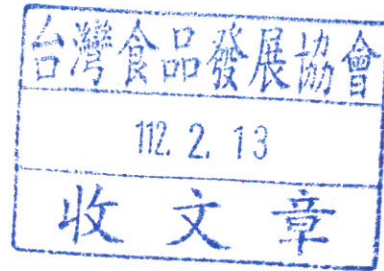 台灣食品發展協會
112. 2. 13
收文章